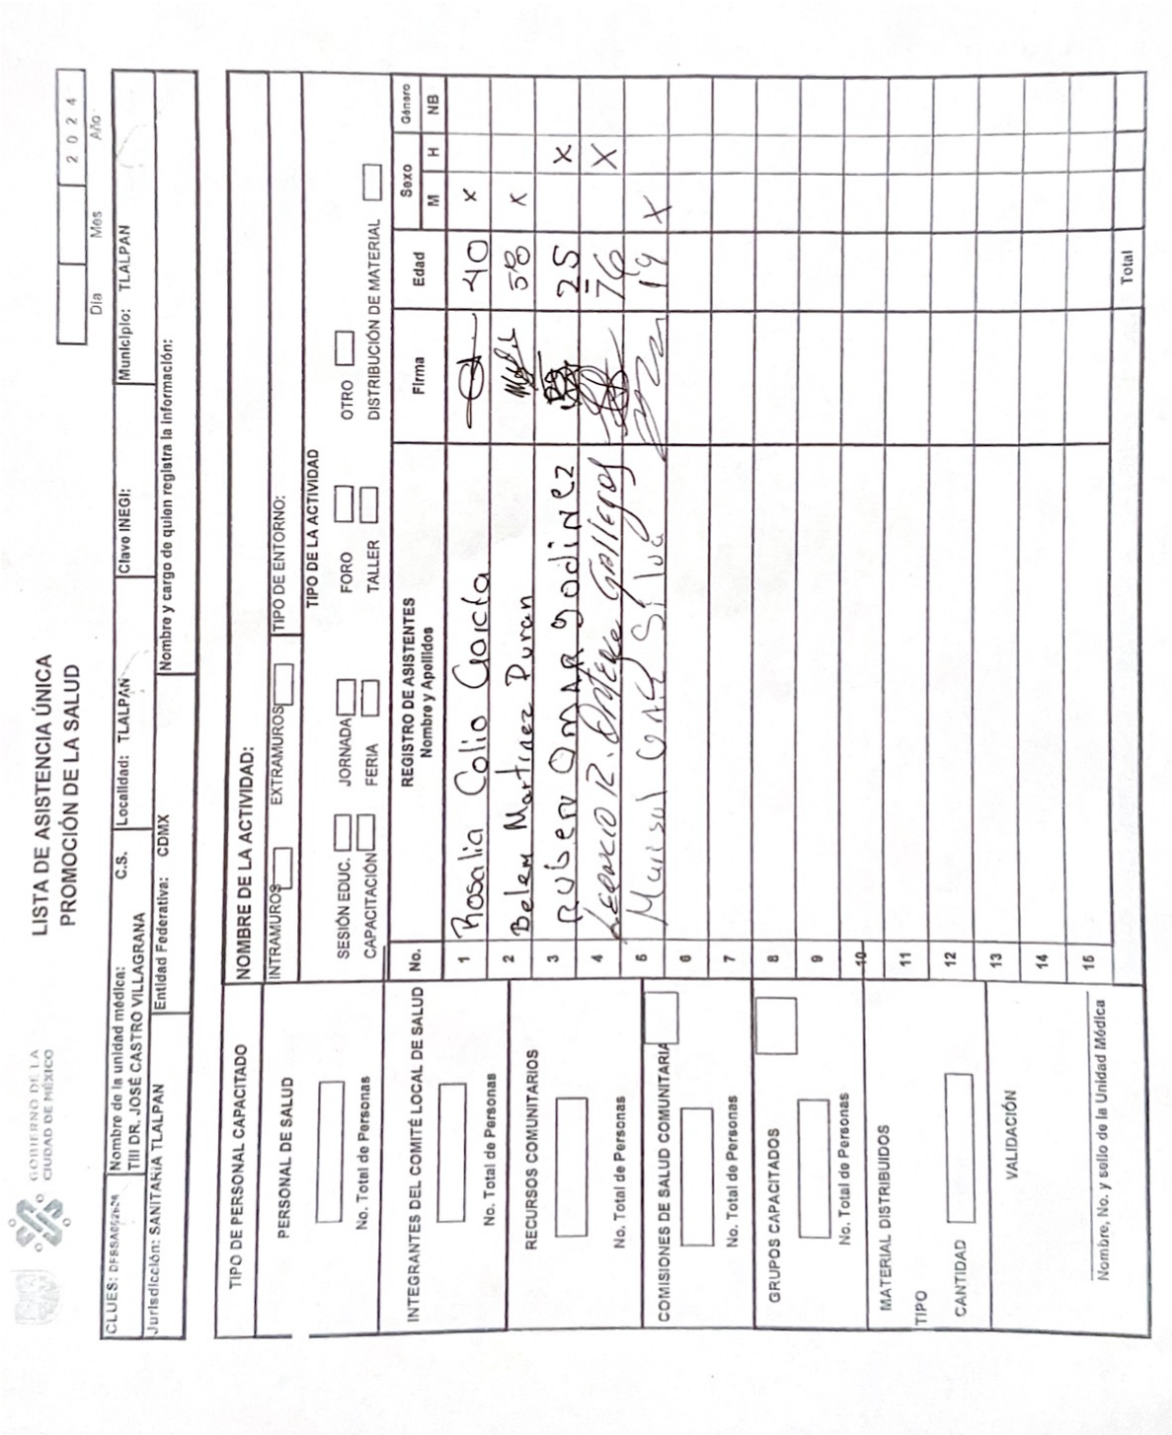 GOBIERNO DE LA
CIUDAD DE MÉXICO
LISTA DE ASISTENCIA ÚNICA
PROMOCIÓN DE LA SALUD
2 0 2 4
Día Mes Año
CLUES:
Nombre de la unidad médica: C.S.
TIII DR. JOSÉ CASTRO VILLAGRANA
Localidad: TLALPAN
Clave INEGI:
Municipio: TLALPAN
Jurisdicción: SANITARIA TLALPAN
Entidad Federativa: CDMX
Nombre y cargo de quien registra la información:
TIPO DE PERSONAL CAPACITADO
PERSONAL DE SALUD
No. Total de Personas
INTEGRANTES DEL COMITÉ LOCAL DE SALUD
No. Total de Personas
RECURSOS COMUNITARIOS
No. Total de Personas
COMISIONES DE SALUD COMUNITARIA
No. Total de Personas
GRUPOS CAPACITADOS
No. Total de Personas
MATERIAL DISTRIBUIDOS
TIPO
CANTIDAD
VALIDACIÓN
Nombre, No. y sello de la Unidad Médica
NOMBRE DE LA ACTIVIDAD:
INTRAMUROS EXTRAMUROS TIPO DE ENTORNO:
TIPO DE LA ACTIVIDAD
SESIÓN EDUC. JORNADA FORO OTRO
CAPACITACIÓN FERIA TALLER DISTRIBUCIÓN DE MATERIAL
No. REGISTRO DE ASISTENTES Firma Edad Sexo Género
Nombre y Apellidos M H NB
1 Rosalia Colio García 40 x
2 Belem Martinez Duran 58 x
3 Ruben OMAR Godinez 25 x
4 R. Gallegos 76 X
5 Silva 19 X
6
7
8
9
10
11
12
13
14
15
Total